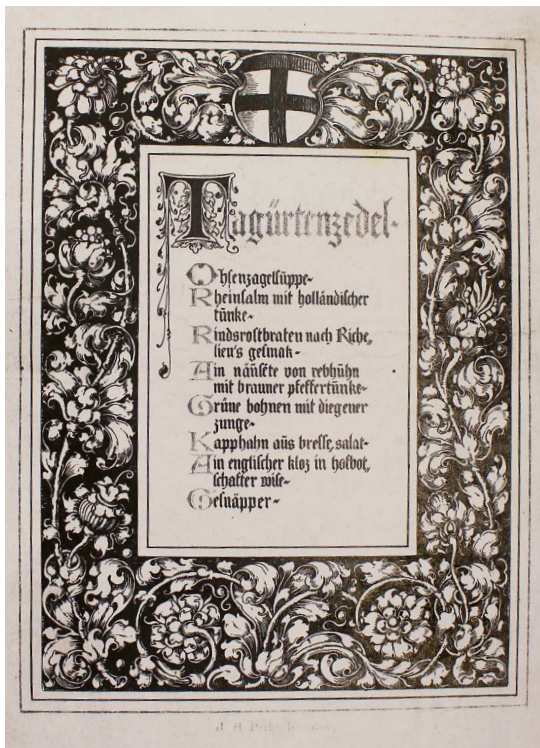 Tagürtenzedel-
Ohsenzagelsüppe-
Rheinsalm mit holländischer
tünke-
Rindsrostbraten nach Riche„
lien's gesmak-
Ain näüsete von rebhühn
mit brauner pfeffertünke-
Grüne bohnen mit diegener
zunge-
Kapphahn aüs bresse, salat-
Ain englischer kloz in hofbot„
schafter wise-
Gesnäpper-